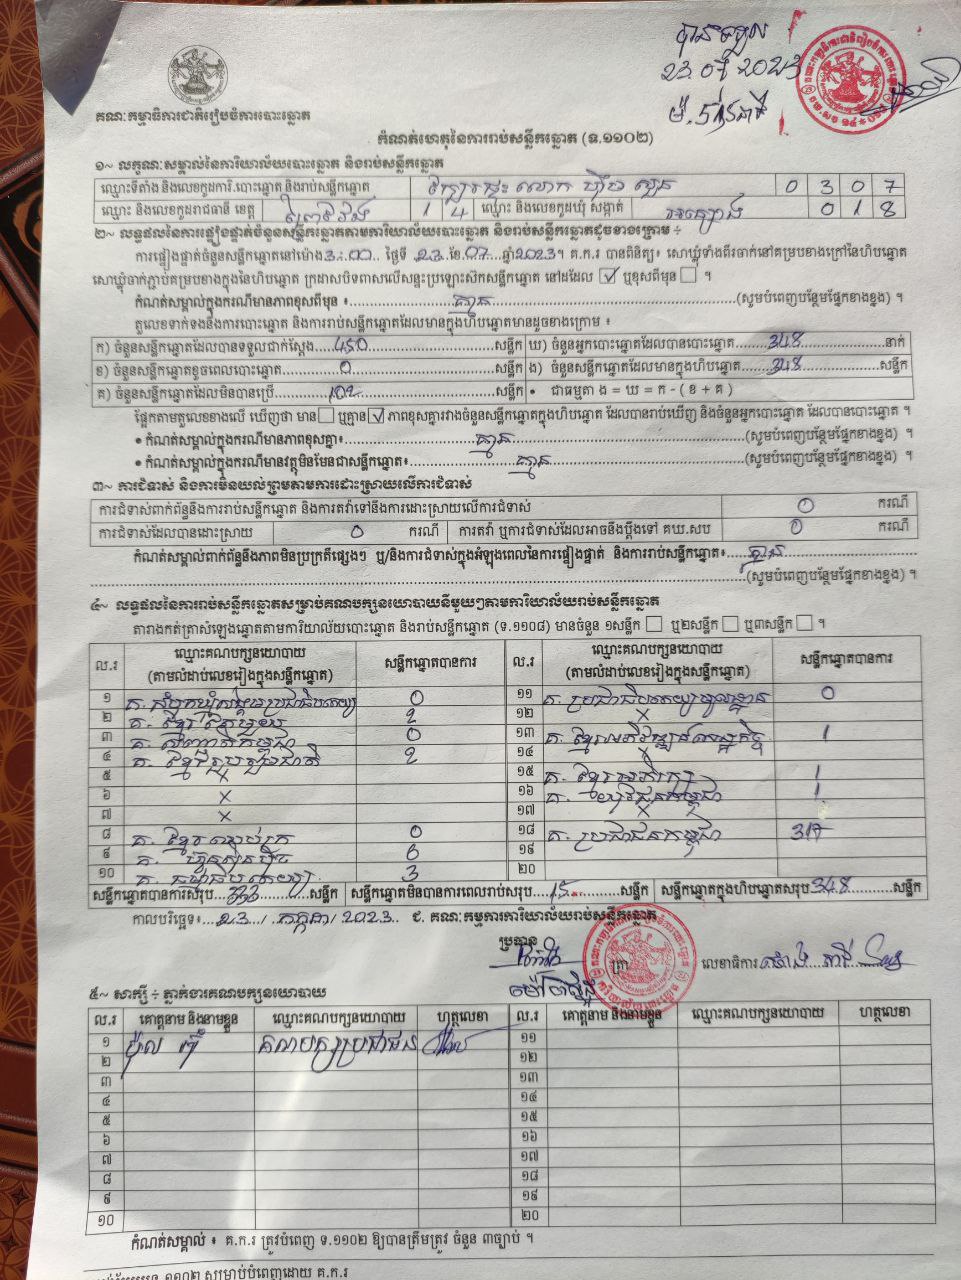 បានទទួល
23.07.2023
គណៈកម្មាធិការជាតិរៀបចំការបោះឆ្នោត
កំណត់ហេតុនៃការរាប់សន្លឹកឆ្នោត (ទ.១១០២)
១~ លក្ខណៈសម្គាល់នៃការិយាល័យបោះឆ្នោត និងរាប់សន្លឹកឆ្នោត
ឈ្មោះទីតាំង និងលេខកូដការិ.បោះឆ្នោត និងរាប់សន្លឹកឆ្នោត 0 3 0 7
ឈ្មោះ និងលេខកូដរាជធានី ខេត្ត ព្រៃវែង 1 4 ឈ្មោះ និងលេខកូដឃុំ សង្កាត់ 0 1 8
២~ លទ្ធផលនៃការផ្ទៀងផ្ទាត់ចំនួនសន្លឹកឆ្នោតតាមការិយាល័យបោះឆ្នោត និងរាប់សន្លឹកឆ្នោតដូចខាងក្រោម ÷
ការផ្ទៀងផ្ទាត់ចំនួនសន្លឹកឆ្នោតនៅម៉ោង 3:00 ថ្ងៃទី 23 ខែ 07 ឆ្នាំ 2023។ គ.ក.រ បានពិនិត្យ៖ សោឃ្លុំទាំងពីរចាក់នៅគម្របខាងក្រៅនៃហិបឆ្នោត
សោឃ្លុំចាក់ភ្ជាប់គម្របខាងក្នុងនៃហិបឆ្នោត ក្រដាសបិទពាសលើសន្ទះប្រឡោះស៊កសន្លឹកឆ្នោត នៅដដែល ☑ ឬខុសពីមុន ☐ ។
កំណត់សម្គាល់ក្នុងករណីមានភាពខុសពីមុន ៖ គ្មាន (សូមបំពេញបន្ថែមផ្នែកខាងខ្នង) ។
តួលេខទាក់ទងនឹងការបោះឆ្នោត និងការរាប់សន្លឹកឆ្នោតដែលមានក្នុងហិបឆ្នោតមានដូចខាងក្រោម ៖
ក) ចំនួនសន្លឹកឆ្នោតដែលបានទទួលជាក់ស្តែង 450 សន្លឹក ឃ) ចំនួនអ្នកបោះឆ្នោតដែលបានបោះឆ្នោត 348 នាក់
ខ) ចំនួនសន្លឹកឆ្នោតខូចពេលបោះឆ្នោត 0 សន្លឹក ង) ចំនួនសន្លឹកឆ្នោតដែលមានក្នុងហិបឆ្នោត 348 សន្លឹក
គ) ចំនួនសន្លឹកឆ្នោតដែលមិនបានប្រើ 102 សន្លឹក • ជាធម្មតា ង = ឃ = ក - ( ខ + គ )
ផ្អែកតាមតួលេខខាងលើ ឃើញថា មាន ☐ ឬគ្មាន ☑ ភាពខុសគ្នារវាងចំនួនសន្លឹកឆ្នោតក្នុងហិបឆ្នោត ដែលបានរាប់ឃើញ និងចំនួនអ្នកបោះឆ្នោត ដែលបានបោះឆ្នោត ។
• កំណត់សម្គាល់ក្នុងករណីមានភាពខុសគ្នា៖ គ្មាន (សូមបំពេញបន្ថែមផ្នែកខាងខ្នង) ។
• កំណត់សម្គាល់ក្នុងករណីមានវត្ថុមិនមែនជាសន្លឹកឆ្នោត៖ គ្មាន (សូមបំពេញបន្ថែមផ្នែកខាងខ្នង) ។
៣~ ការជំទាស់ និងការមិនយល់ព្រមតាមការដោះស្រាយលើការជំទាស់
ការជំទាស់ពាក់ព័ន្ធនឹងការរាប់សន្លឹកឆ្នោត និងការតវ៉ាទៅនឹងការដោះស្រាយលើការជំទាស់ 0 ករណី
ការជំទាស់ដែលបានដោះស្រាយ 0 ករណី ការតវ៉ា ឬការជំទាស់ដែលអាចនឹងប្តឹងទៅ គឃ.សប 0 ករណី
កំណត់សម្គាល់ពាក់ព័ន្ធនឹងភាពមិនប្រក្រតីផ្សេងៗ ឬ/និងការជំទាស់ក្នុងអំឡុងពេលនៃការផ្ទៀងផ្ទាត់ និងការរាប់សន្លឹកឆ្នោត៖ គ្មាន
(សូមបំពេញបន្ថែមផ្នែកខាងខ្នង) ។
៤~ លទ្ធផលនៃការរាប់សន្លឹកឆ្នោតសម្រាប់គណបក្សនយោបាយនីមួយៗតាមការិយាល័យរាប់សន្លឹកឆ្នោត
តារាងកត់ត្រាសំឡេងឆ្នោតតាមការិយាល័យបោះឆ្នោត និងរាប់សន្លឹកឆ្នោត (ទ.១១០៨) មានចំនួន ១សន្លឹក ☐ ឬ២សន្លឹក ☐ ឬ៣សន្លឹក ☐ ។
ល.រ ឈ្មោះគណបក្សនយោបាយ (តាមលំដាប់លេខរៀងក្នុងសន្លឹកឆ្នោត) សន្លឹកឆ្នោតបានការ ល.រ ឈ្មោះគណបក្សនយោបាយ (តាមលំដាប់លេខរៀងក្នុងសន្លឹកឆ្នោត) សន្លឹកឆ្នោតបានការ
១ គ. សំបុកឃ្មុំសង្គមប្រជាធិបតេយ្យ 0 ១១ គ. ប្រជាធិបតេយ្យមូលដ្ឋាន 0
២ គ. ខ្មែរតែមួយ 2 ១២ x
៣ គ. សញ្ជាតិកម្ពុជា 0 ១៣ គ. ខ្មែរអភិវឌ្ឍន៍សេដ្ឋកិច្ច 1
៤ គ. ខ្មែររួបរួមជាតិ 2 ១៤ x
៥ x ១៥ គ. ខ្មែរអភិរក្ស 1
៦ x ១៦ គ. យុវជនកម្ពុជា 1
៧ x ១៧ x
៨ គ. ខ្មែរឈប់ក្រ 0 ១៨ គ. ប្រជាជនកម្ពុជា 317
៩ គ. ហ្វ៊ុនស៊ិនប៉ិច 6 ១៩
១០ គ. ធម្មាធិបតេយ្យ 3 ២០
សន្លឹកឆ្នោតបានការសរុប 333 សន្លឹក សន្លឹកឆ្នោតមិនបានការពេលរាប់សរុប 15 សន្លឹក សន្លឹកឆ្នោតក្នុងហិបឆ្នោតសរុប 348 សន្លឹក
កាលបរិច្ឆេទ៖ 23 / កក្កដា / 2023 ជ. គណៈកម្មការការិយាល័យរាប់សន្លឹកឆ្នោត
ប្រធាន
ត្រា លេខាធិការ
៥~ សាក្សី ÷ ភ្នាក់ងារគណបក្សនយោបាយ
ល.រ គោត្តនាម និងនាមខ្លួន ឈ្មោះគណបក្សនយោបាយ ហត្ថលេខា ល.រ គោត្តនាម និងនាមខ្លួន ឈ្មោះគណបក្សនយោបាយ ហត្ថលេខា
១ គណបក្សប្រជាជន ១១
២ ១២
៣ ១៣
៤ ១៤
៥ ១៥
៦ ១៦
៧ ១៧
៨ ១៨
៩ ១៩
១០ ២០
កំណត់សម្គាល់ ៖ គ.ក.រ ត្រូវបំពេញ ទ.១១០២ ឱ្យបានត្រឹមត្រូវ ចំនួន ៣ច្បាប់ ។
១១០២ សម្រាប់បំពេញដោយ គ.ក.រ